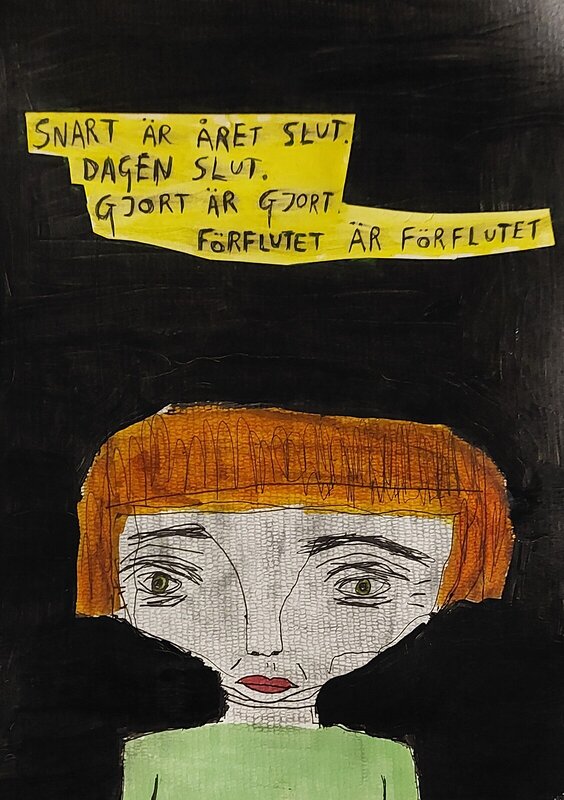 SNART ÄR ÅRET SLUT.
DAGEN SLUT.
GJORT ÄR GJORT.
FÖRFLUTET ÄR FÖRFLUTET